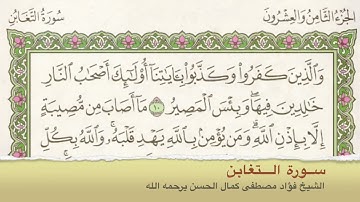 الجزء الثامن والعشرون
سورة التغابن
وَالَّذِينَ كَفَرُوا وَكَذَّبُوا بِآيَاتِنَا أُولَٰئِكَ أَصْحَابُ النَّارِ
خَالِدِينَ فِيهَا وَبِئْسَ الْمَصِيرُ ١٠ مَا أَصَابَ مِن مُّصِيبَةٍ
إِلَّا بِإِذْنِ اللَّهِ وَمَن يُؤْمِن بِاللَّهِ يَهْدِ قَلْبَهُ وَاللَّهُ بِكُلِّ
سورة التغابن
الشيخ فؤاد مصطفى كمال الحسن يرحمه الله